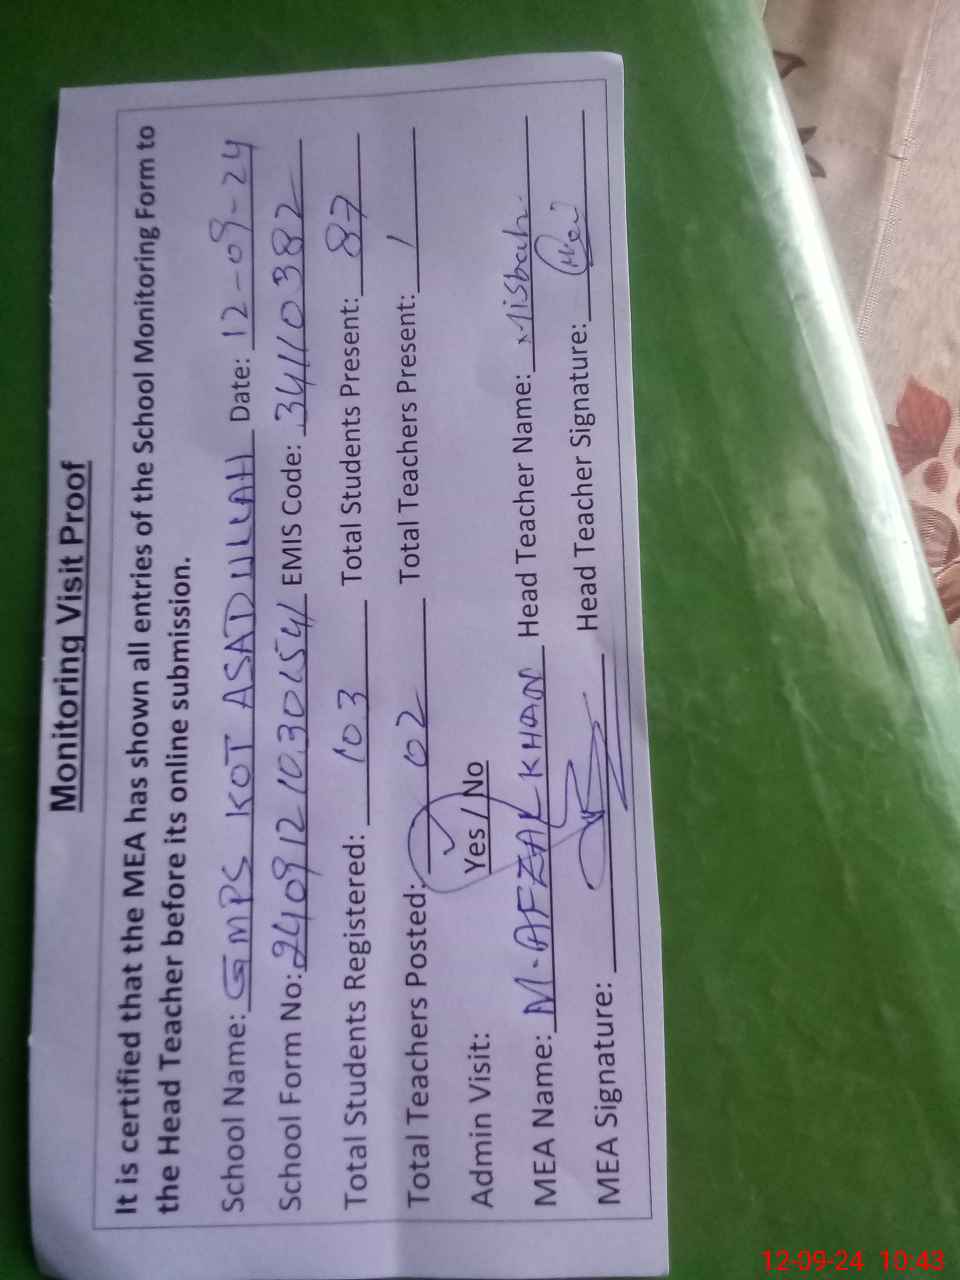 Monitoring Visit Proof
It is certified that the MEA has shown all entries of the School Monitoring Form to
the Head Teacher before its online submission.
School Name: GMPS KOT ASADULLAH Date: 12-09-24
School Form No: EMIS Code: 34110382
Total Students Registered: 103 Total Students Present: 87
Total Teachers Posted: 02 Total Teachers Present: 1
Admin Visit: Yes / No
MEA Name: M. AFZAL KHAN Head Teacher Name: Misbah.
MEA Signature: Head Teacher Signature:
12-09-24 10:43